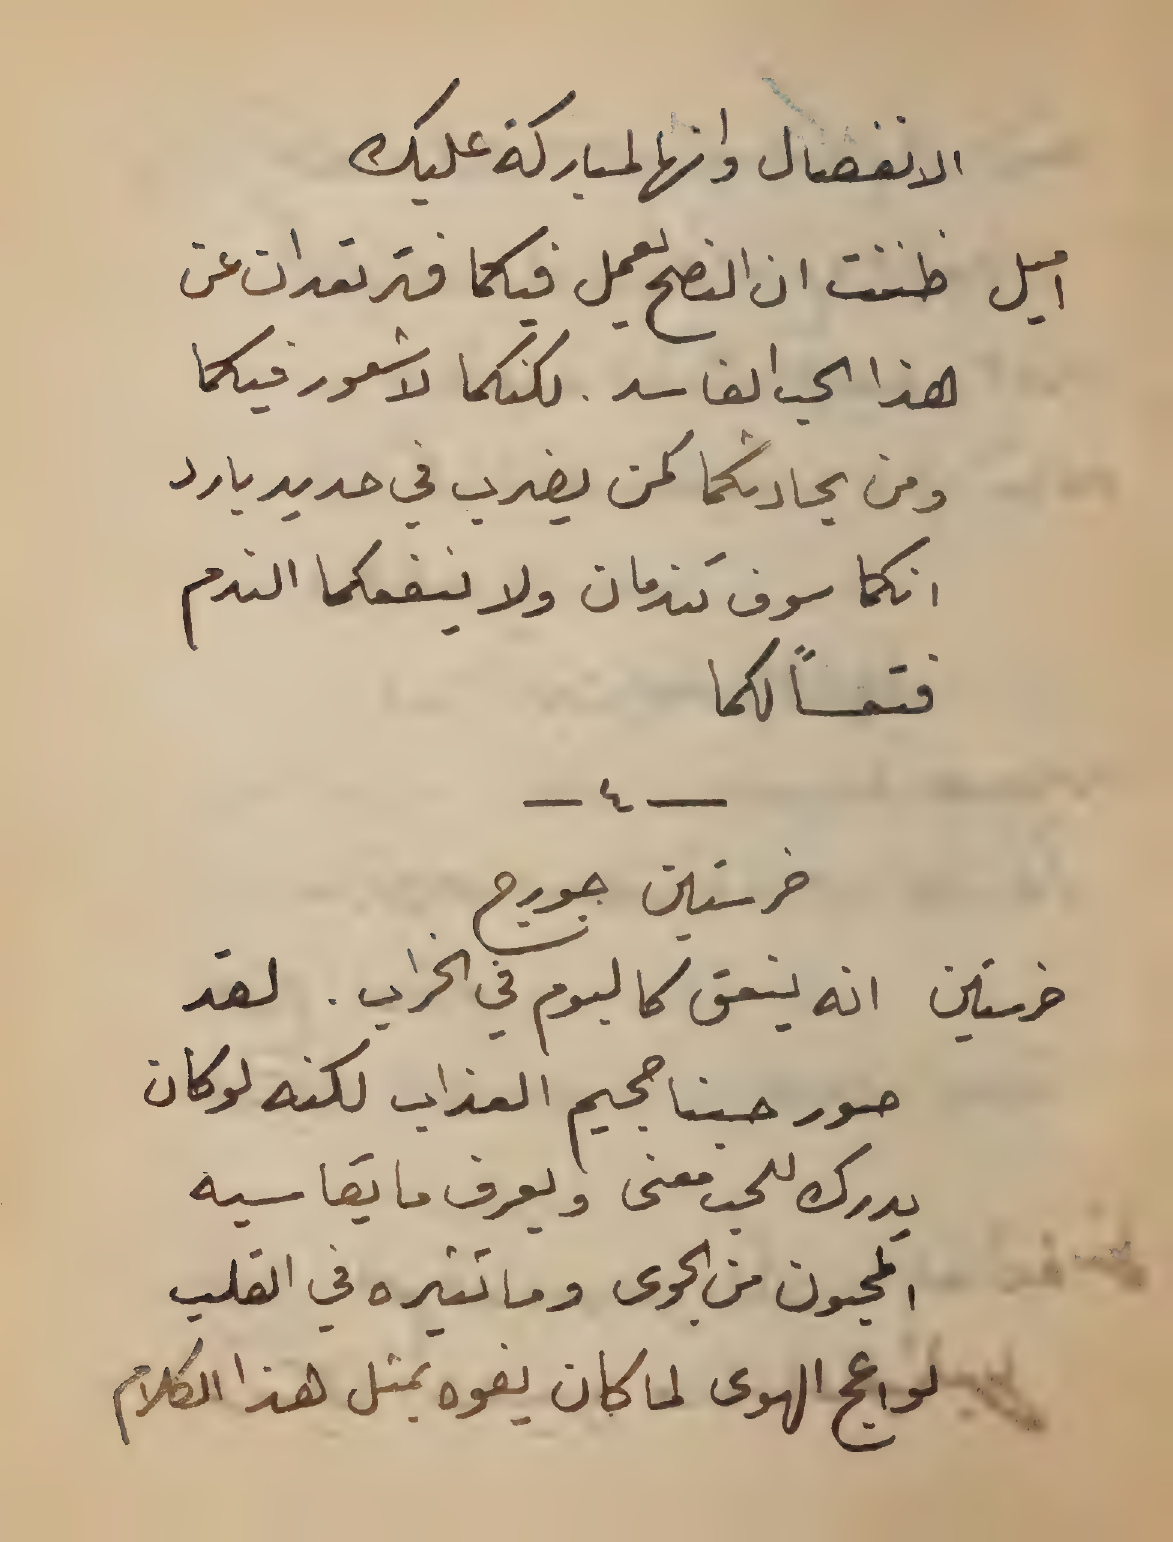 الانفصال وانها لمباركة عليك
اميل ظننت ان النصح يعمل فيكما فترتدان عن
هذا الحب الفاسد . لكنكما لا شعور فيكما
ومن يحادثكما كمن يضرب في حديد بارد
انكما سوف تندمان ولا ينفعكما الندم
فتعساً لكما
— ٤ —
خرستين جورج
خرستين انه ينعق كالبوم في الخراب . لقد
صور حبنا جحيم العذاب لكنه لو كان
يدرك للحب معنى ويعرف ما يقاسيه
المحبون من الجوى وما تثيره في القلب
لواعج الهوى لما كان يفوه بمثل هذا الكلام